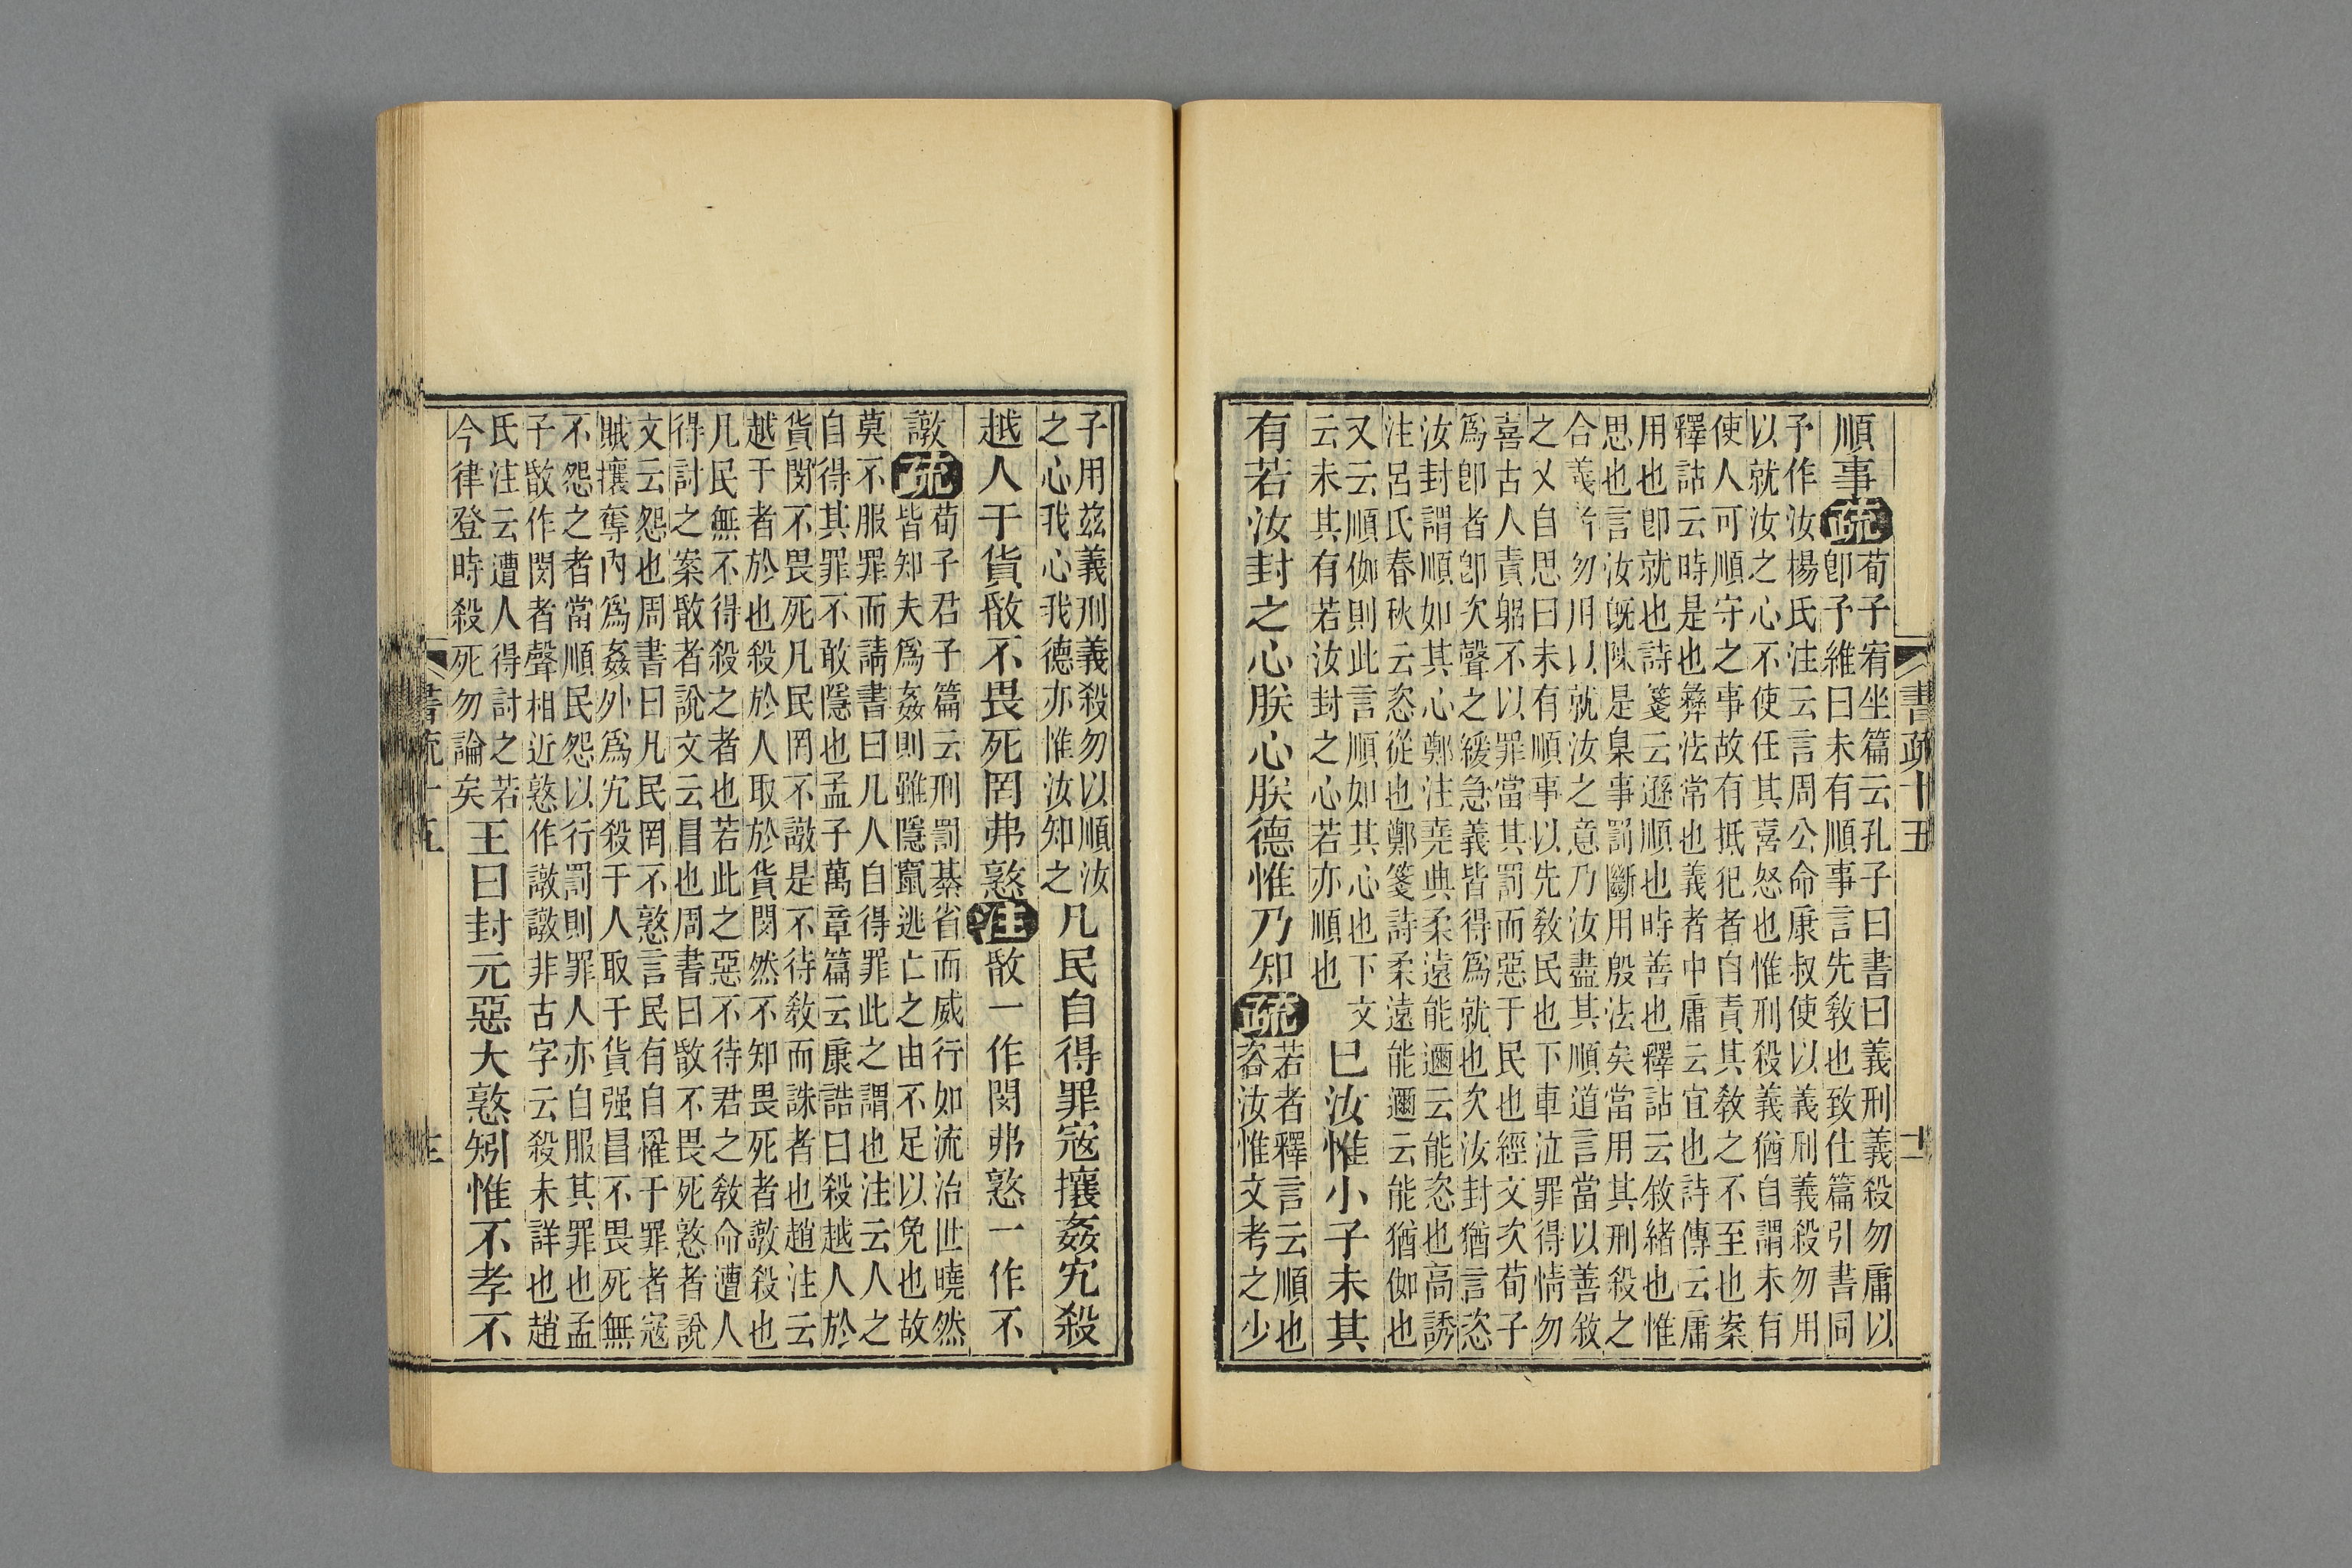 書疏十五
順事疏荀子宥坐篇云孔子曰書曰義刑義殺勿庸以
卽予維曰未有順事言先敎也致仕篇引書同
予作汝楊氏注云言周公命康叔使以義刑義殺勿用
以就汝之心不使任其喜怒也惟刑殺義猶自謂未有
使人可順守之事故有抵犯者自責其敎之不至也案
釋詁云時是也彝法常也義者中庸云宜也詩傳云庸
用也卽就也詩箋云遜順也時善也釋詁云敘緒也惟
思也言汝旣陳是臬事罰斷用殷法矣當用其刑殺之
合義者勿用以就汝之意乃汝盡其順道言當以善敘
之又自思曰未有順事以先敎民也下車泣罪得情勿
喜古人責躬不以罪當其罰而惡于民也經文次荀子
爲卽者卽次聲之緩急義皆得爲就也次汝封猶言恣
汝封謂順如其心鄭注堯典柔遠能邇云能恣也高誘
注呂氏春秋云恣從也鄭箋詩柔遠能邇云能猶伽也
又云順伽則此言順如其心也下文
云未其有若汝封之心若亦順也
已汝惟小子未其
有若汝封之心朕心朕德惟乃知疏若者釋言云順也
容汝惟文考之少
子用茲義刑義殺勿以順汝
之心我心我德亦惟汝知之
凡民自得罪寇攘姦宄殺
越人于貨暋不畏死罔弗憝注暋一作閔弗憝一作不
譈疏荀子君子篇云刑罰綦省而威行如流治世曉然
皆知夫爲姦則雖隱竄逃亡之由不足以免也故
莫不服罪而請書曰凡人自得罪此之謂也注云人之
自得其罪不敢隱也孟子萬章篇云康誥曰殺越人於
貨閔不畏死凡民罔不譈是不待敎而誅者也趙注云
越于者於也殺於人取於貨閔然不知畏死者譈殺也
凡民無不得殺之者也若此之惡不待君之敎命遭人
得討之案暋者說文云冒也周書曰暋不畏死憝者說
文云怨也周書曰凡民罔不憝言民有自罹于罪者寇
賊攘奪內爲姦外爲宄殺于人取于貨强冒不畏死無
不怨之者當順民怨以行罰則罪人亦自服其罪也孟
子暋作閔者聲相近憝作譈譈非古字云殺未詳也趙
氏注云遭人得討之若
今律登時殺死勿論矣
王曰封元惡大憝矧惟不孝不